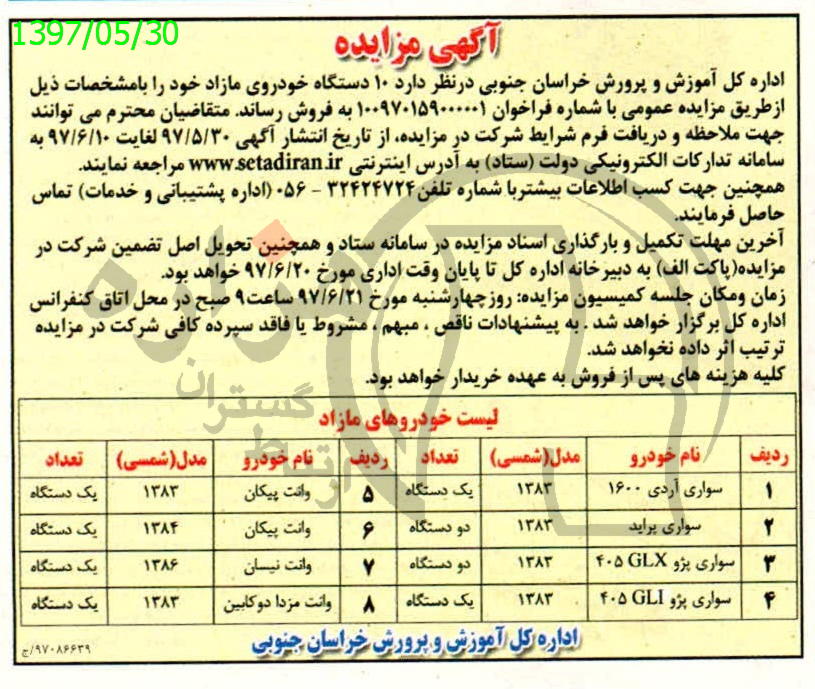 1397/05/30
آگهی مزایده
اداره کل آموزش و پرورش خراسان جنوبی درنظر دارد ۱۰ دستگاه خودروی مازاد خود را بامشخصات ذیل
ازطریق مزایده عمومی با شماره فراخوان ۱۰۰۹۷۰۱۵۹۰۰۰۰۰۱ به فروش رساند. متقاضیان محترم می توانند
جهت ملاحظه و دریافت فرم شرایط شرکت در مزایده، از تاریخ انتشار آگهی ۹۷/۵/۳۰ لغایت ۹۷/۶/۱۰ به
سامانه تدارکات الکترونیکی دولت (ستاد) به آدرس اینترنتی www.setadiran.ir مراجعه نمایند.
همچنین جهت کسب اطلاعات بیشتربا شماره تلفن ۳۲۴۲۴۷۲۴ - ۰۵۶ (اداره پشتیبانی و خدمات) تماس
حاصل فرمایند.
آخرین مهلت تکمیل و بارگذاری اسناد مزایده در سامانه ستاد و همچنین تحویل اصل تضمین شرکت در
مزایده(پاکت الف) به دبیرخانه اداره کل تا پایان وقت اداری مورخ ۹۷/۶/۲۰ خواهد بود.
زمان ومکان جلسه کمیسیون مزایده: روزچهارشنبه مورخ ۹۷/۶/۲۱ ساعت۹ صبح در محل اتاق کنفرانس
اداره کل برگزار خواهد شد . به پیشنهادات ناقص ، مبهم ، مشروط یا فاقد سپرده کافی شرکت در مزایده
ترتیب اثر داده نخواهد شد.
کلیه هزینه های پس از فروش به عهده خریدار خواهد بود.
لیست خودروهای مازاد
ردیف نام خودرو مدل(شمسی) تعداد ردیف نام خودرو مدل(شمسی) تعداد
۱ سواری آردی ۱۶۰۰ ۱۳۸۳ یک دستگاه ۵ وانت پیکان ۱۳۸۳ یک دستگاه
۲ سواری پراید ۱۳۸۳ دو دستگاه ۶ وانت پیکان ۱۳۸۴ یک دستگاه
۳ سواری پژو GLX ۴۰۵ ۱۳۸۳ دو دستگاه ۷ وانت نیسان ۱۳۸۶ یک دستگاه
۴ سواری پژو GLI ۴۰۵ ۱۳۸۳ یک دستگاه ۸ وانت مزدا دوکابین ۱۳۸۳ یک دستگاه
اداره کل آموزش و پرورش خراسان جنوبی
۹۷۰۸۶۶۳۹/ج
هزاره
گستران
ارتباط